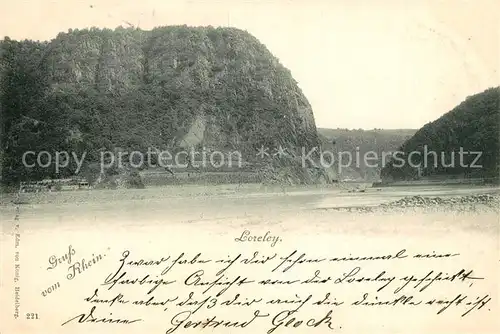 copyright kopierschutz
Loreley.
Gruß
vom Rhein.
Zwar habe ich Dir schon einmal eine
farbige Ansicht von der Loreley geschickt,
denke aber, daß Dir auch die dunkle recht ist,
Deine Gertrud Glock
Edm. von König, Heidelberg.
221.